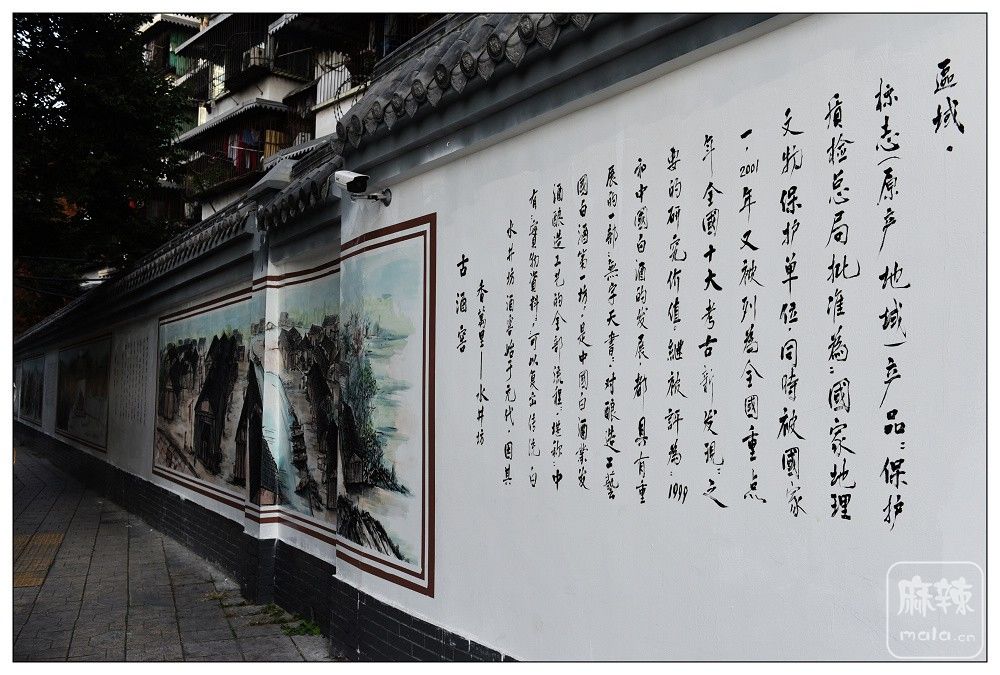 古酒窖
香萬里——水井坊
水井坊酒窖始于元代，因其
有“實物資料，可以复出传统白
酒釀造工艺的全部流程”，堪称“中
國白酒第一坊”，是中國白酒業发
展的一部“無字天書”，对釀造工藝
和中國白酒的发展，都具有重
要的研究价值，继被評為“1999
年全國十大考古新发現”之
一，2001年又被列為全國重点
文物保护单位，同時被國家
質检总局批准為“國家地理
标志（原产地域）产品”保护
區域．
麻辣
mala.cn